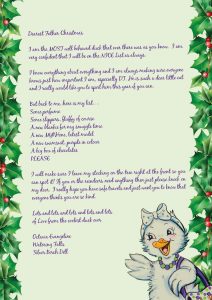 Dearest Father Christmas
I am the MOST well behaved duck that ever there was as you know. I am
very confident that I will be on the NICE List as always.
I know everything about everything and I am always making sure everyone
knows just how important I am, especially DJ. He is such a dear little out
and I really would like you to spoil him this year if you can.
But back to me, here is my list. . .
Some perfume
Some slippers, fluffy of course
A new blanket for my snuggle time
A new phone, latest model
A new swimsuit, purple in colour
A big box of chocolates
PLEASE
I will make sure I leave my stocking on the tree right at the front so you
can spot it! If you or the reindeers need anything then just please knock on
my door. I really hope you have safe travels and just want you to know that
everyone thinks you are so kind.
Lots and lots and lots and lots and lots
of Love from the cutest duck ever
Octavia Evangeline
Watering Falls
Silver Birch Dell